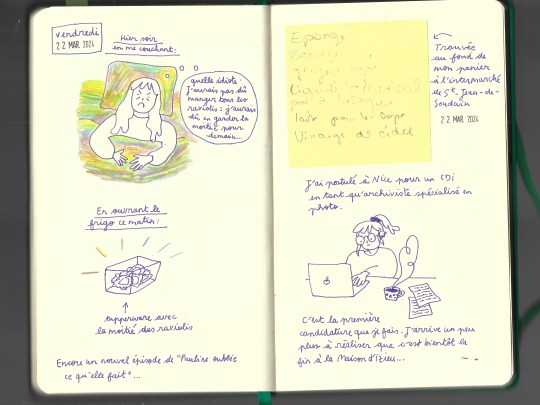 vendredi
22 MAR. 2024
Hier soir
en me couchant:
quelle idiote !
J'aurais pas dû
manger tous les
raviolis : j'aurais
dû en garder la
moitié pour
demain...
En ouvrant le
frigo ce matin:
tupperware avec
la moitié des raviolis
Encore un nouvel épisode de "Pauline oublie
ce qu'elle fait"...
Eponge
Liquide
Vinaigre de cidre
Trouvée
au fond de
mon panier
à l'intermarché
de St-Jean-de-
Soudain
22 MAR. 2024
J'ai postulé à Nice pour un CDI
en tant qu'archiviste spécialisé en
photo.
C'est la première
candidature que je fais. J'arrive un peu
plus à réaliser que c'est bientôt la
fin à la Maison d'Izieu...